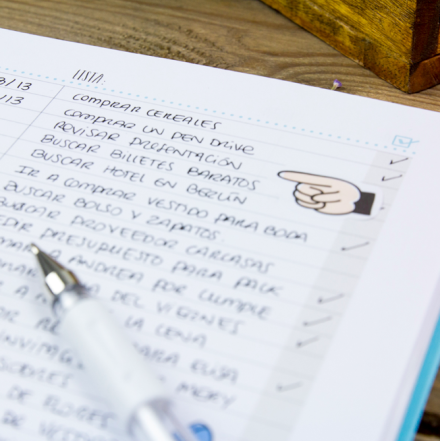 LISTA
3/13 COMPRAR CEREALES
/13 COMPRAR UN PEN DRIVE
REVISAR PRESENTACIÓN
BUSCAR BILLETES BARATOS
BUSCAR HOTEL EN BERLÍN
IR A COMPRAR VESTIDO PARA BODA
BUSCAR BOLSO Y ZAPATOS
BUSCAR PROVEEDOR CARCASAS
PRESUPUESTO PARA PACK
A ANDREA POR CUMPLE
DEL VIERNES
LA CENA
PARA ELISA
DE FLORES
DE